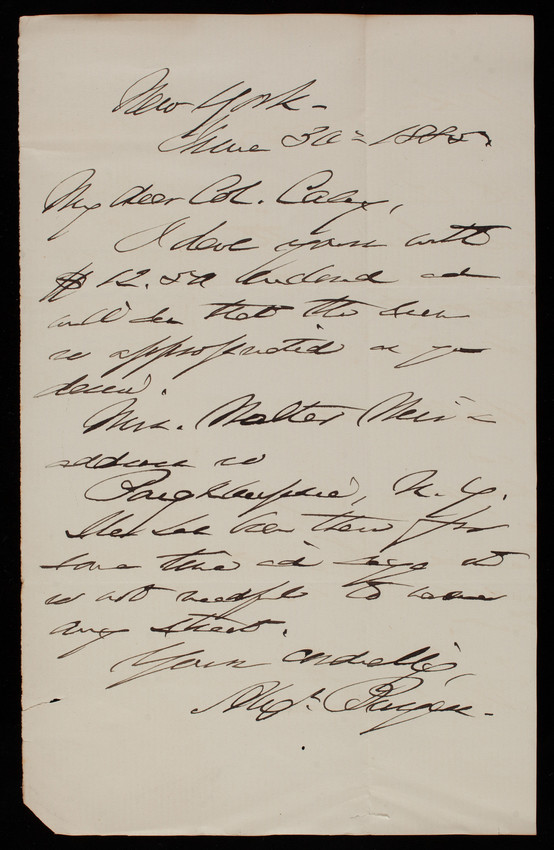 New York -
June 30th 1885.
My dear Col. Casey,
I have yours with
$12.50 enclosed and
will see that the sum
is appropriated as you
desire.
Mrs. Walter
address is
Poughkeepsie, N.Y.
She has been there for
some time and says it
is not needful to name
any street.
Yours cordially,